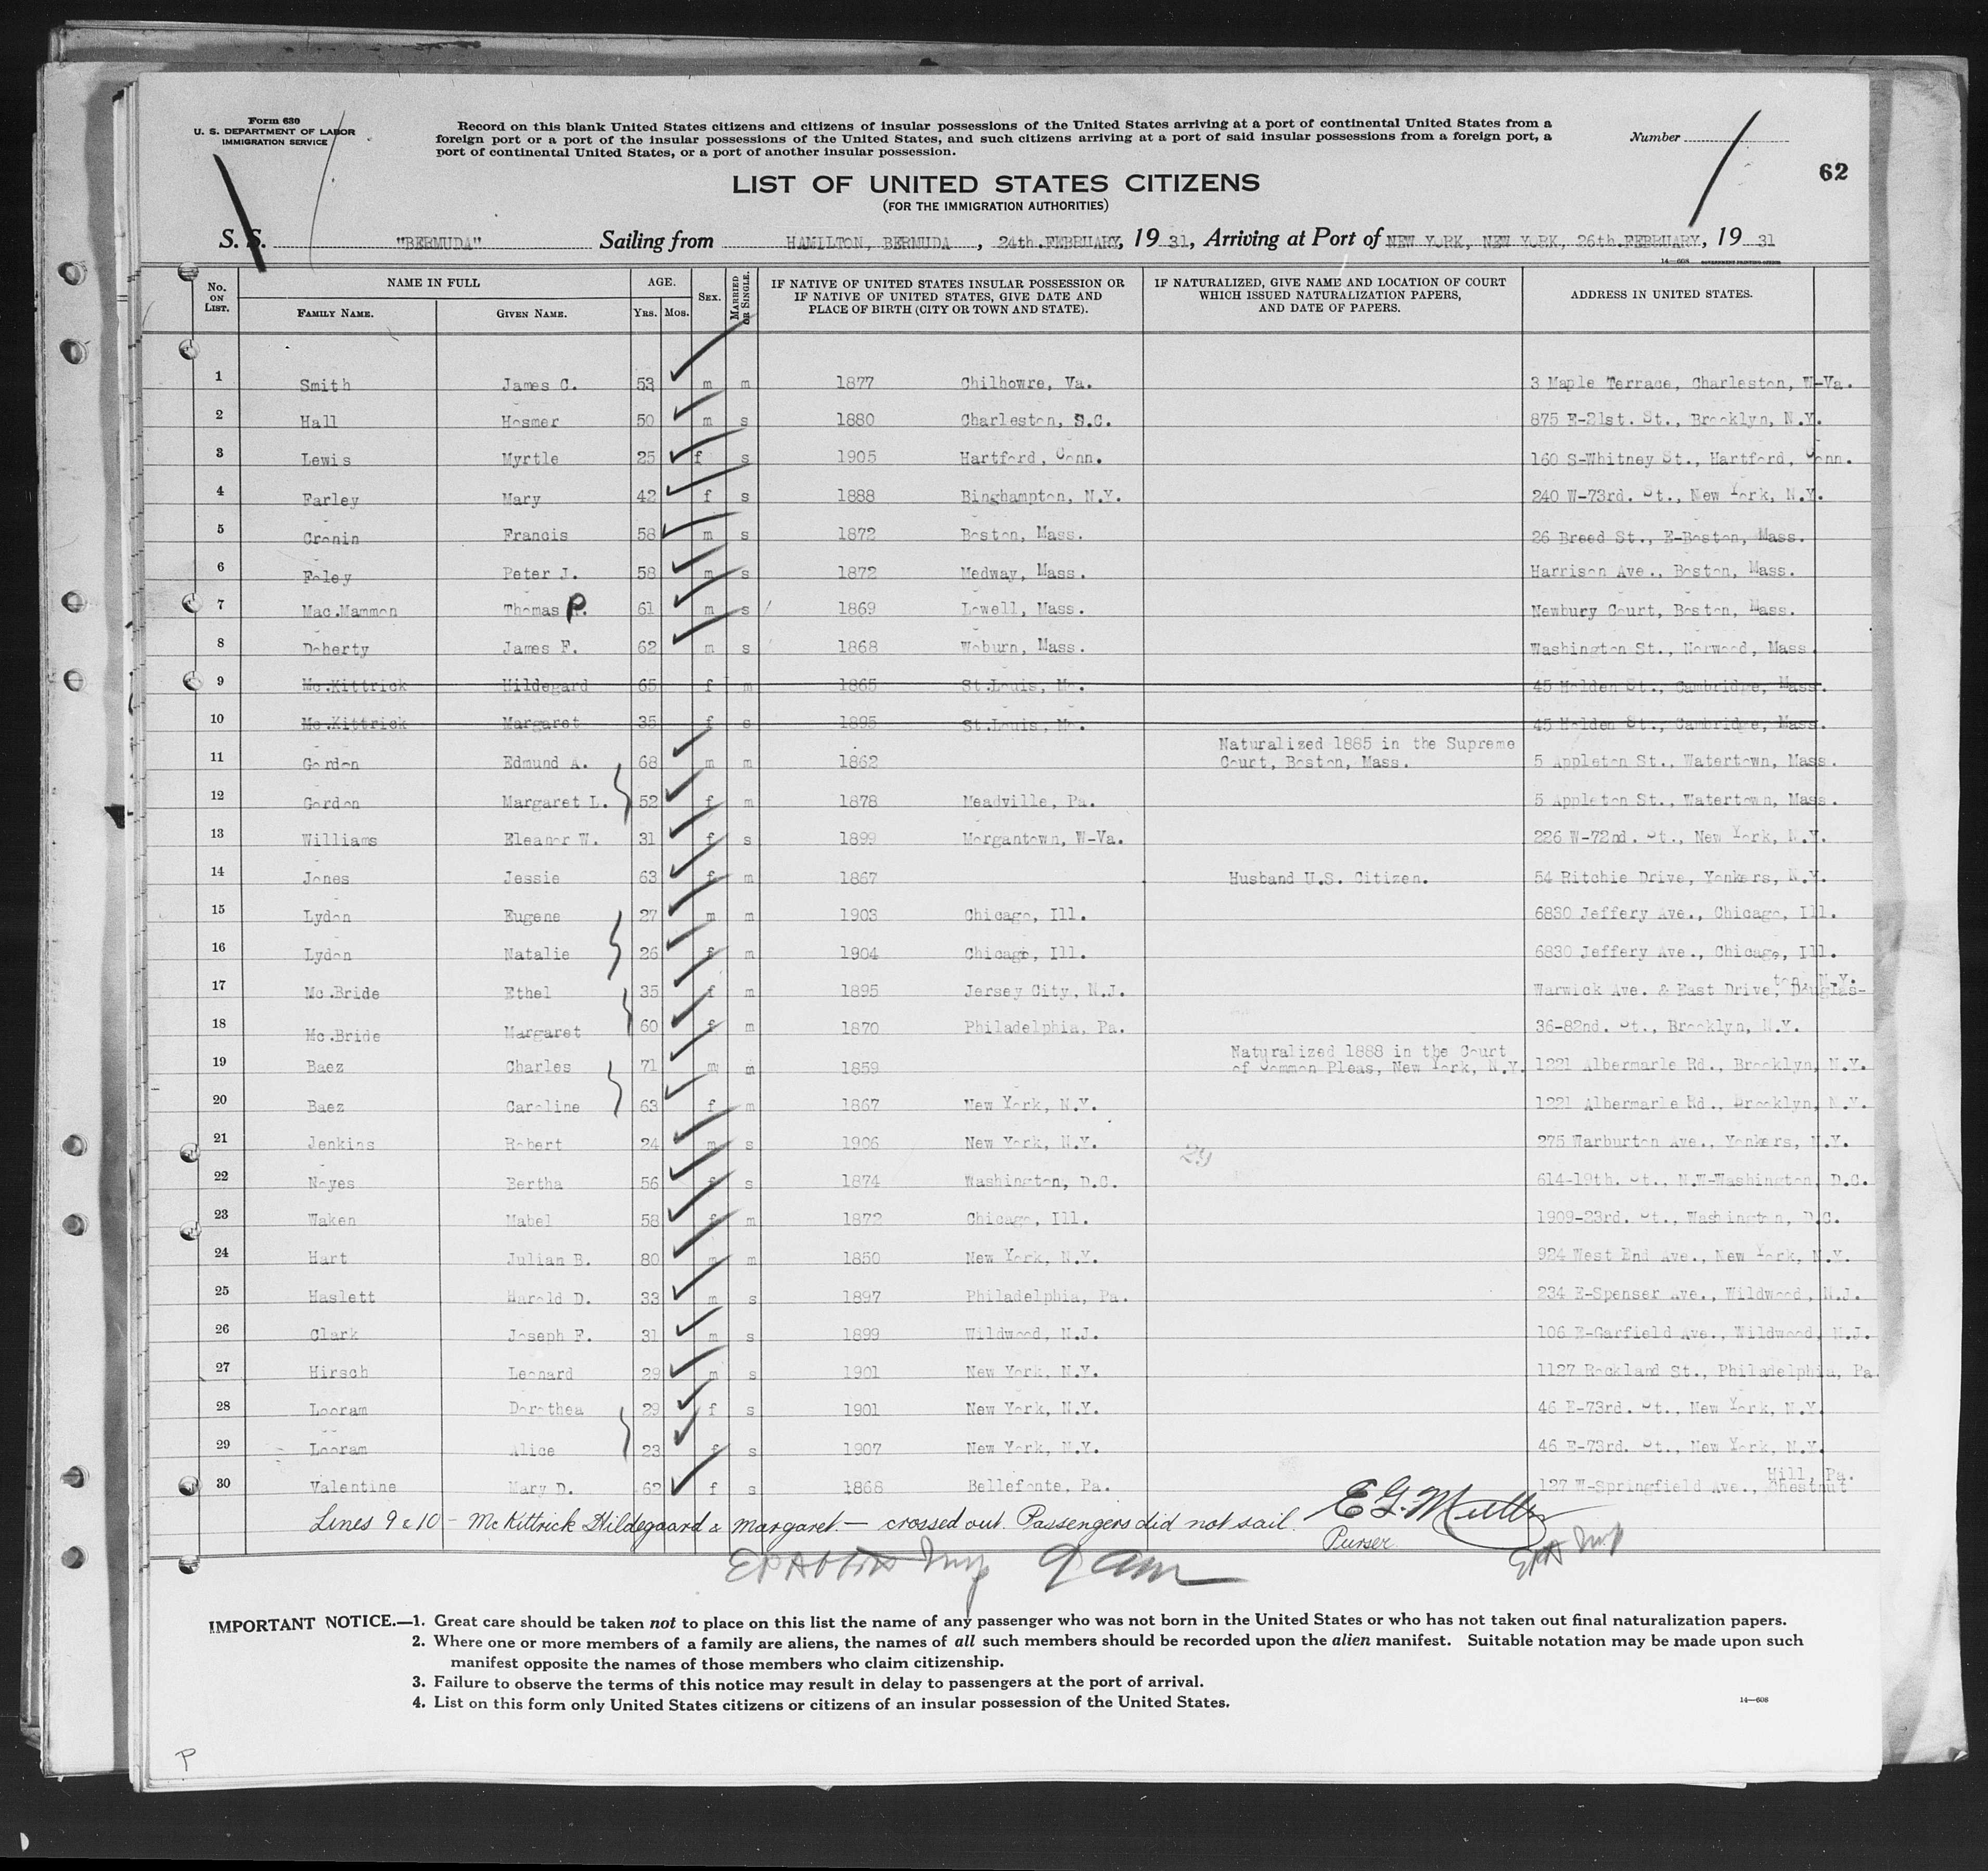 Form 630
U. S. DEPARTMENT OF LABOR
IMMIGRATION SERVICE
Record on this blank United States citizens and citizens of insular possessions of the United States arriving at a port of continental United States from a
foreign port or a port of the insular possessions of the United States, and such citizens arriving at a port of said insular possessions from a foreign port, a
port of continental United States, or a port of another insular possession.
Number
62
LIST OF UNITED STATES CITIZENS
(FOR THE IMMIGRATION AUTHORITIES)
S. S. "BERMUDA" Sailing from HAMILTON, BERMUDA, 24th. FEBRUARY, 19 31, Arriving at Port of NEW YORK, NEW YORK, 26th. FEBRUARY, 19 31
14—608 GOVERNMENT PRINTING OFFICE
No. ON LIST. NAME IN FULL FAMILY NAME. GIVEN NAME. AGE. YRS. MOS. SEX. MARRIED OR SINGLE. IF NATIVE OF UNITED STATES INSULAR POSSESSION OR IF NATIVE OF UNITED STATES, GIVE DATE AND PLACE OF BIRTH (CITY OR TOWN AND STATE). IF NATURALIZED, GIVE NAME AND LOCATION OF COURT WHICH ISSUED NATURALIZATION PAPERS, AND DATE OF PAPERS. ADDRESS IN UNITED STATES.
1 Smith James C. 53 m m 1877 Chilhowre, Va. 3 Maple Terrace, Charleston, W-Va.
2 Hall Hosmer 50 m s 1880 Charleston, S.C. 875 E-21st. St., Brooklyn, N.Y.
3 Lewis Myrtle 25 f s 1905 Hartford, Conn. 160 S-Whitney St., Hartford, Conn.
4 Farley Mary 42 f s 1888 Binghampton, N.Y. 240 W-73rd. St., New York, N.Y.
5 Cronin Francis 58 m s 1872 Boston, Mass. 26 Breed St., E-Boston, Mass.
6 Foley Peter J. 58 m s 1872 Medway, Mass. Harrison Ave., Boston, Mass.
7 Mac.Mammon Thomas P. 61 m s 1869 Lowell, Mass. Newbury Court, Boston, Mass.
8 Doherty James F. 62 m s 1868 Woburn, Mass. Washington St., Norwood, Mass
9 Mc.Kittrick Hildegard 65 f m 1865 St.Louis, Mo. 45 Holden St., Cambridge, Mass.
10 Mc.Kittrick Margaret 35 f s 1895 St.Louis, Mo. 45 Holden St., Cambridge, Mass.
11 Gordon Edmund A. 68 m m 1862 Naturalized 1885 in the Supreme Court, Boston, Mass. 5 Appleton St., Watertown, Mass.
12 Gordon Margaret L. 52 f m 1878 Meadville, Pa. 5 Appleton St., Watertown, Mass.
13 Williams Eleanor W. 31 f s 1899 Morgantown, W-Va. 226 W-72nd. St., New York, N.Y.
14 Jones Jessie 63 f m 1867 Husband U.S. Citizen. 54 Ritchie Drive, Yonkers, N.Y.
15 Lydon Eugene 27 m m 1903 Chicago, Ill. 6830 Jeffery Ave., Chicago, Ill.
16 Lydon Natalie 26 f m 1904 Chicago, Ill. 6830 Jeffery Ave., Chicago, Ill.
17 Mc.Bride Ethel 35 f m 1895 Jersey City, N.J. Warwick Ave. & East Drive, Douglas-ton, N.Y.
18 Mc.Bride Margaret 60 f m 1870 Philadelphia, Pa. 36-82nd. St., Brooklyn, N.Y.
19 Baez Charles 71 m m 1859 Naturalized 1888 in the Court of Common Pleas, New York, N.Y. 1221 Albermarle Rd., Brooklyn, N.Y.
20 Baez Caroline 63 f m 1867 New York, N.Y. 1221 Albermarle Rd., Brooklyn, N.Y.
21 Jenkins Robert 24 m s 1906 New York, N.Y. 29 275 Warburton Ave., Yonkers, N.Y.
22 Noyes Bertha 56 f s 1874 Washington, D.C. 614-19th. St., N.W-Washington, D.C.
23 Waken Mabel 58 f m 1872 Chicago, Ill. 1909-23rd. St., Washington, D.C.
24 Hart Julian B. 80 m m 1850 New York, N.Y. 924 West End Ave., New York, N.Y.
25 Haslett Harold D. 33 m s 1897 Philadelphia, Pa. 234 E-Spenser Ave., Wildwood, N.J.
26 Clark Joseph F. 31 m s 1899 Wildwood, N.J. 106 E-Garfield Ave., Wildwood, N.J.
27 Hirsch Leonard 29 m s 1901 New York, N.Y. 1127 Rockland St., Philadelphia, Pa
28 Looram Dorothea 29 f s 1901 New York, N.Y. 46 E-73rd. St., New York, N.Y.
29 Looram Alice 23 f s 1907 New York, N.Y. 46 E-73rd. St., New York, N.Y.
30 Valentine Mary D. 62 f s 1868 Bellefonte, Pa. 127 W-Springfield Ave., Chestnut Hill, Pa.
Lines 9 & 10 - McKittrick Hildegaard & Margaret. — crossed out. Passengers did not sail.
Purser
IMPORTANT NOTICE.—1. Great care should be taken not to place on this list the name of any passenger who was not born in the United States or who has not taken out final naturalization papers.
2. Where one or more members of a family are aliens, the names of all such members should be recorded upon the alien manifest. Suitable notation may be made upon such
manifest opposite the names of those members who claim citizenship.
3. Failure to observe the terms of this notice may result in delay to passengers at the port of arrival.
4. List on this form only United States citizens or citizens of an insular possession of the United States.
14—608
P